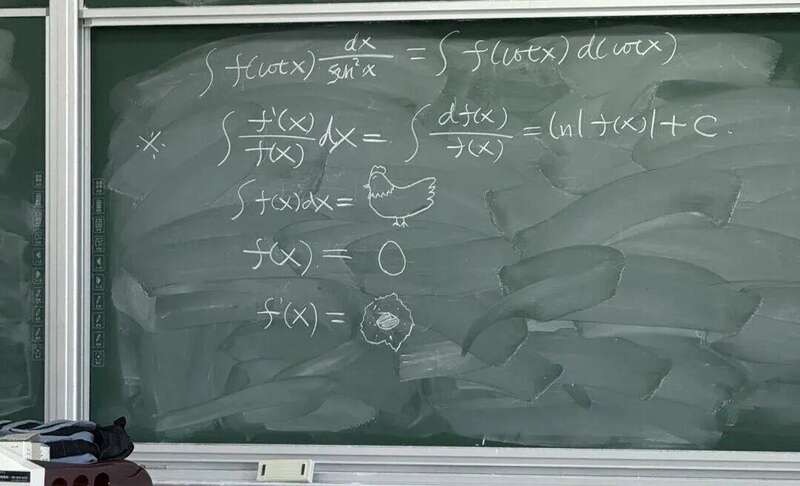 ∫ f(cotx) dx/sin²x = ∫ f(cotx) d(cotx)
※ ∫ f'(x)/f(x) dx = ∫ df(x)/f(x) = ln|f(x)| + C.
∫ f(x)dx =
f(x) =
f'(x) =